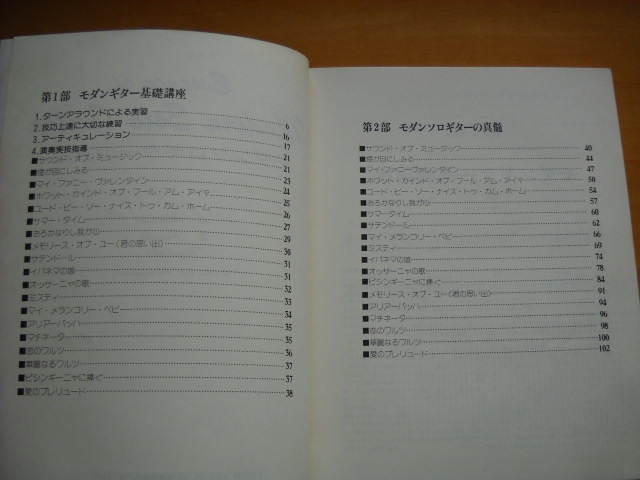 第1部 モダンギター基礎講座
1.ターンアラウンドによる実習 6
2.技巧上達に大切な練習 16
3.アーティキュレーション 17
4.演奏実技指導 21
■サウンド・オブ・ミュージック 21
■煙が目にしみる 23
■マイ・ファニー・ヴァレンタイン 24
■ホワット・カインド・オブ・フール・アム・アイヤ 25
■ユード・ビー・ソー・ナイス・トゥ・カム・ホーム 26
■サマー・タイム 27
■おろかなりし我が心 29
■メモリース・オブ・ユー(君の思い出) 30
■サテンドール 31
■イパネマの娘 31
■オッサーニャの歌 32
■ミスティ 33
■マイ・メランコリー・ベビー 34
■アリアーバッハ 35
■マチネータ 35
■恋のワルツ 36
■華麗なるワルツ 37
■ピシンギーニャに捧ぐ 37
■愛のプレリュード 38
第2部 モダンソロギターの真髄
■サウンド・オブ・ミュージック 40
■煙が目にしみる 44
■マイ・ファニー・ヴァレンタイン 47
■ホワット・カインド・オブ・フール・アム・アイヤ 50
■ユード・ビー・ソー・ナイス・トゥ・カム・ホーム 54
■おろかなりし我が心 57
■サマータイム 60
■サテンドール 62
■マイ・メランコリー・ベビー 66
■ミスティ 69
■イパネマの娘 74
■オッサーニャの歌 78
■ピシンギーニャに捧ぐ 84
■メモリース・オブ・ユー(君の思い出) 91
■アリアーバッハ 94
■マチネータ 96
■恋のワルツ 98
■華麗なるワルツ 100
■愛のプレリュード 102